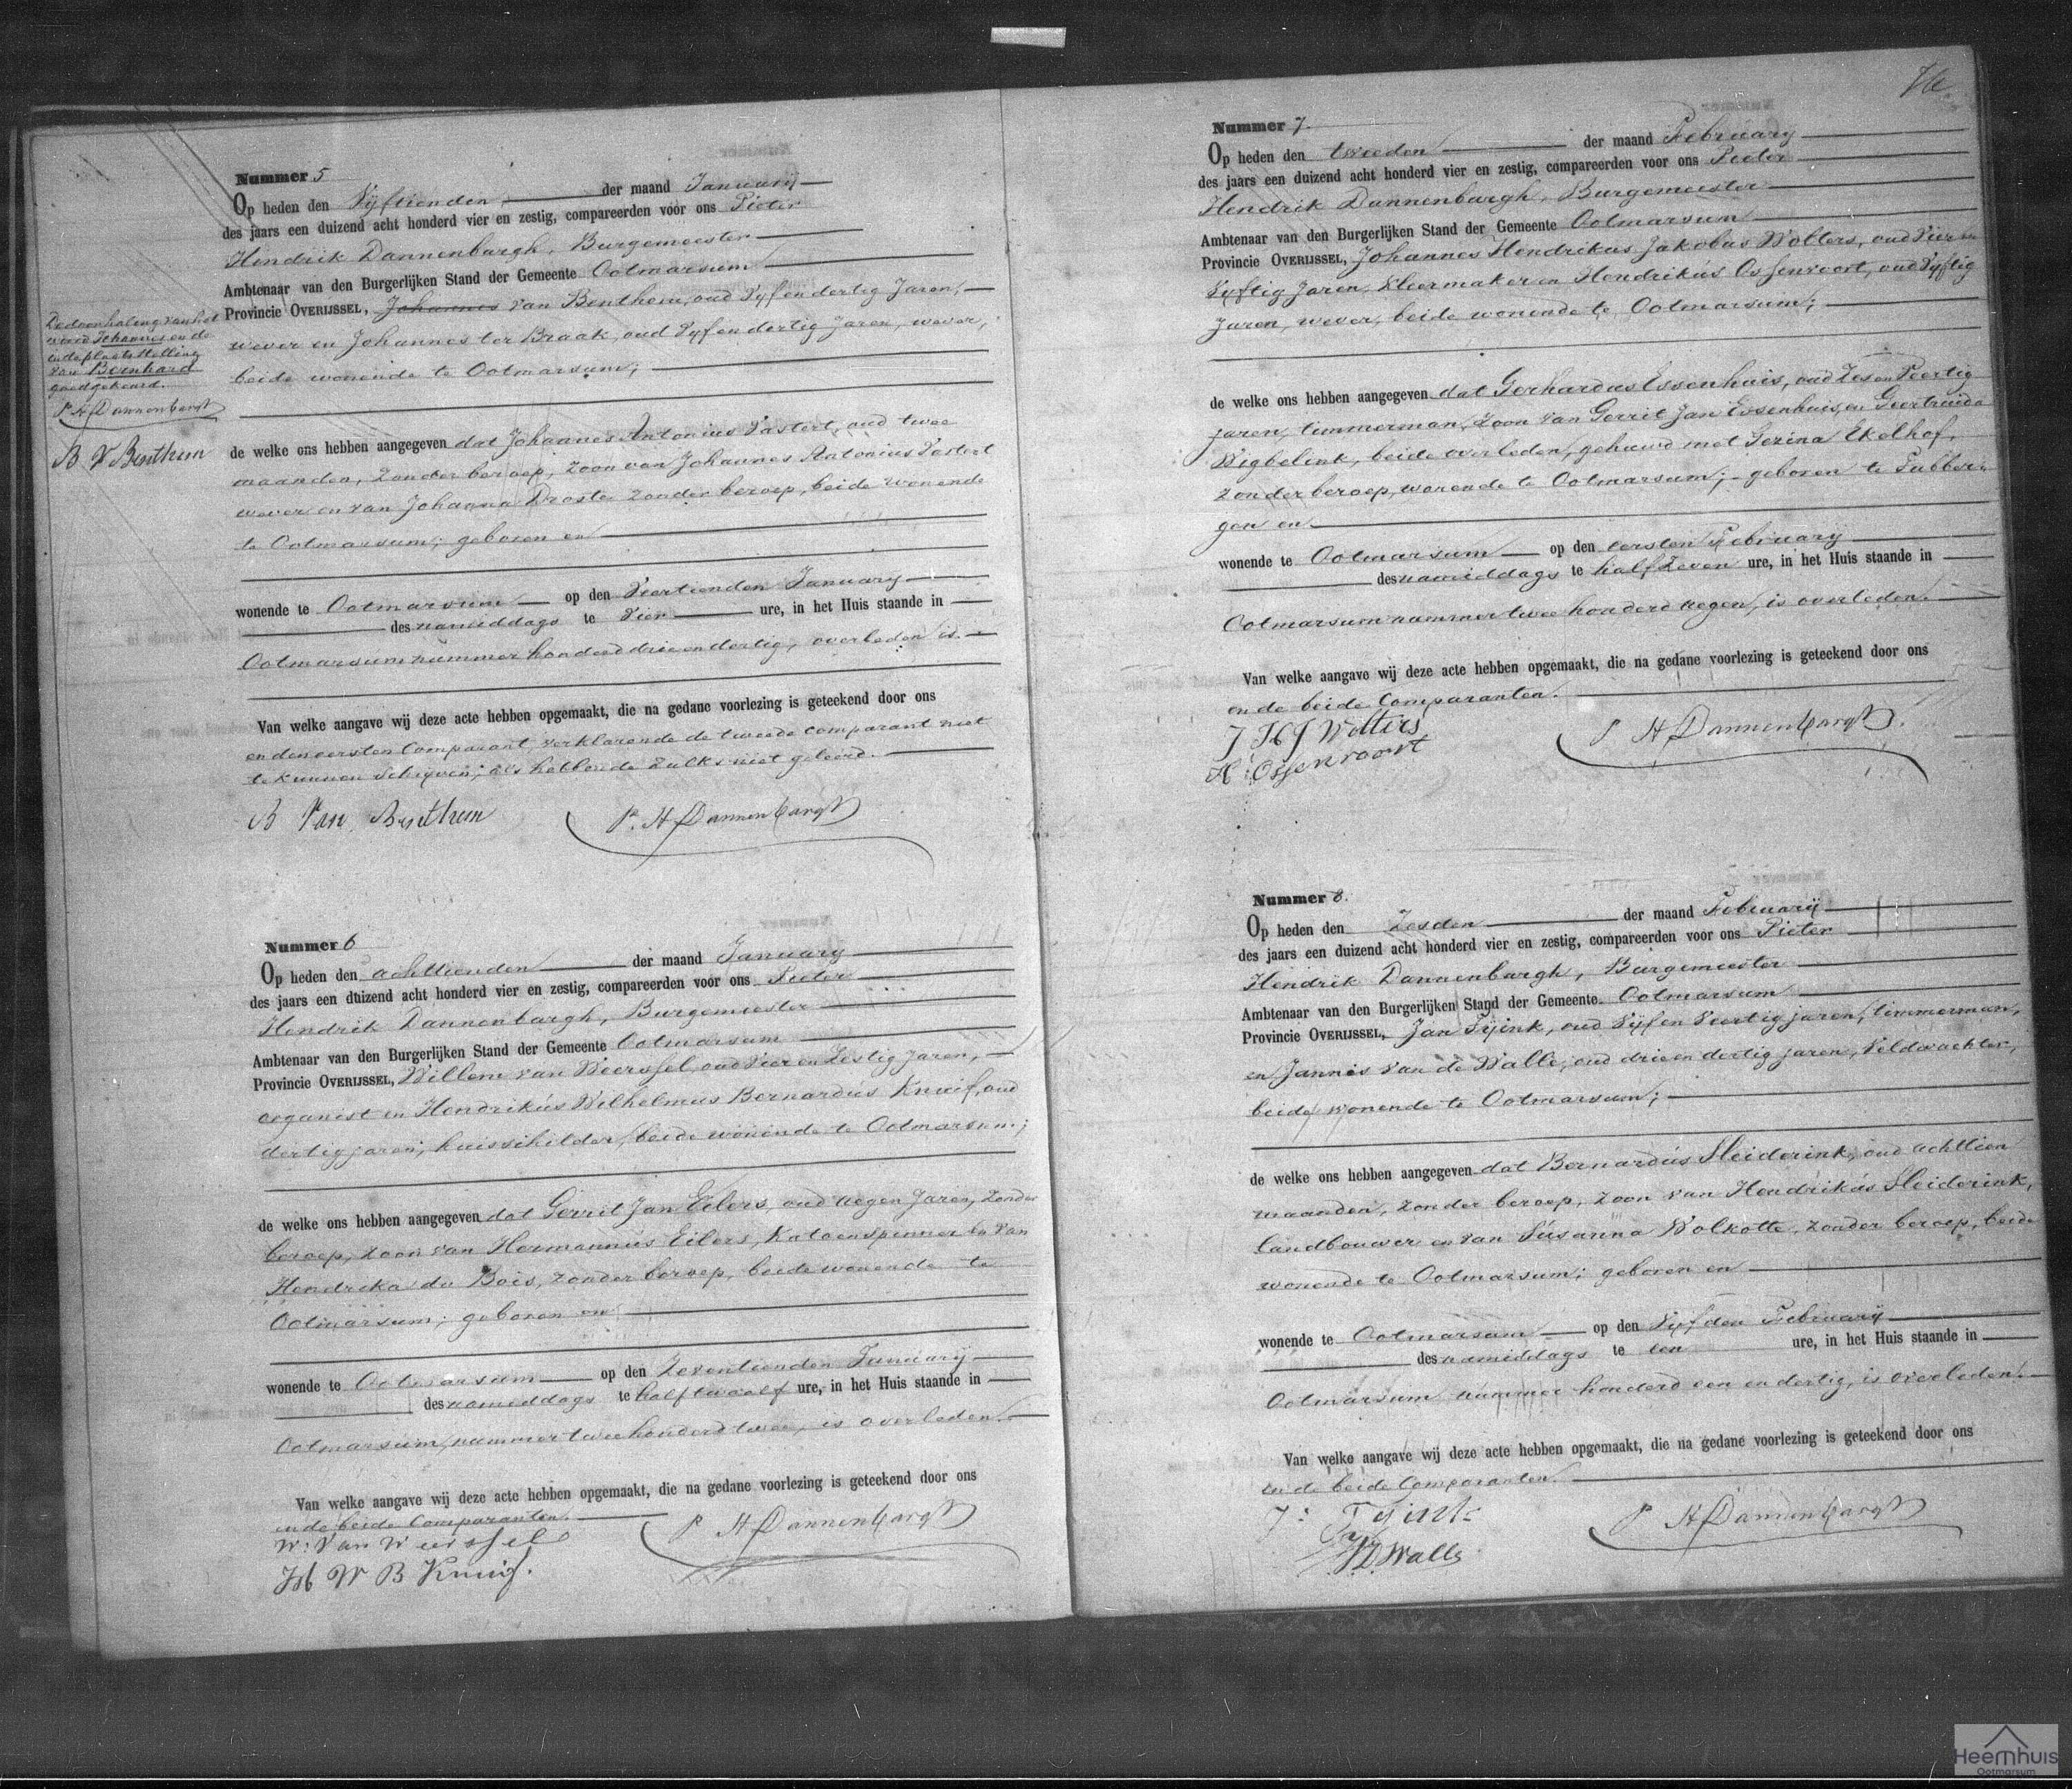 Nummer 5
Op heden den Vijftienden der maand Januarij
des jaars een duizend acht honderd vier en zestig, compareerden voor ons Pieter
Hendrik Dannenbargh, Burgemeester
Ambtenaar van den Burgerlijken Stand der Gemeente Ootmarsum
Provincie OVERIJSSEL, Johannes van Benthem, oud Vijf en dertig Jaren,
wever en Johannes ter Braak, oud Vijf en dertig Jaren, wever,
beide wonende te Ootmarsum;
De doorhaling van het
woord Johannes en de
in de plaats stelling
van Bernhard
goedgekeurd.
P H Dannenbargh
B V Benthem
de welke ons hebben aangegeven dat Johannes Antonius Pastert, oud twee
maanden, zonder beroep, zoon van Johannes Antonius Pastert
wever en van Johanna Droste zonder beroep, beide wonende
te Ootmarsum; geboren en
wonende te Ootmarsum op den Veertienden Januarij
des namiddags te Vier ure, in het Huis staande in
Ootmarsum nummer honderd drie en dertig, overleden is.
Van welke aangave wij deze acte hebben opgemaakt, die na gedane voorlezing is geteekend door ons
en den eersten Comparant, verklarende de tweede comparant niet
te kunnen Schrijven, als hebbende zulks niet geleerd.
B Van Benthem P. H Dannenbargh
Nummer 6
Op heden den achttienden der maand Januarij
des jaars een duizend acht honderd vier en zestig, compareerden voor ons Pieter
Hendrik Dannenbargh, Burgemeester
Ambtenaar van den Burgerlijken Stand der Gemeente Ootmarsum
Provincie OVERIJSSEL, Willem van Weerssel, oud Vier en Zestig Jaren,
organist en Hendrikus Wilhelmus Bernardus Knuif, oud
dertig jaren, huisschilder, beide wonende te Ootmarsum;
de welke ons hebben aangegeven dat Gerrit Jan Eilers, oud negen Jaren, zonder
beroep, zoon van Hermannus Eilers, Katoenspinner en van
Hendrika du Bois, zonder beroep, beide wonende te
Ootmarsum; geboren en
wonende te Ootmarsum op den Zeventienden Januarij
des namiddags te half twaalf ure, in het Huis staande in
Ootmarsum, nummer twee honderd twee, is overleden.
Van welke aangave wij deze acte hebben opgemaakt, die na gedane voorlezing is geteekend door ons
en de beide Comparanten.
W: Van Weerssel P H Dannenbargh
H W B Knuif.
76
Nummer 7.
Op heden den tweeden der maand February
des jaars een duizend acht honderd vier en zestig, compareerden voor ons Pieter
Hendrik Dannenbargh, Burgemeester
Ambtenaar van den Burgerlijken Stand der Gemeente Ootmarsum
Provincie OVERIJSSEL, Johannes Hendrikus Jakobus Wolters, oud Vier en
Vijftig Jaren, Kleermaker en Hendrikus Ossenvoort, oud Vijftig
Jaren, wever, beide wonende te Ootmarsum;
de welke ons hebben aangegeven dat Gerhardus Essenhuis, oud Zes en Veertig
jaren, timmerman, Zoon van Gerrit Jan Essenhuis, en Geertruida
Wigbelink, beide overleden, gehuwd met Gezina Ekelhof,
zonder beroep, wonende te Ootmarsum; geboren te Tubber-
gen en
wonende te Ootmarsum op den eersten February
des namiddags te half Zeven ure, in het Huis staande in
Ootmarsum nummer twee honderd negen, is overleden.
Van welke aangave wij deze acte hebben opgemaakt, die na gedane voorlezing is geteekend door ons
en de beide Comparanten.
J H J Wolters P H Dannenbargh
H: Ossenvoort
Nummer 8.
Op heden den Zesden der maand February
des jaars een duizend acht honderd vier en zestig, compareerden voor ons Pieter
Hendrik Dannenbargh, Burgemeester
Ambtenaar van den Burgerlijken Stand der Gemeente Ootmarsum
Provincie OVERIJSSEL, Jan Tijink, oud Vijf en Veertig jaren, timmerman,
en Jannis van de Walle, oud drie en dertig jaren, Veldwachter,
beide wonende te Ootmarsum;
de welke ons hebben aangegeven dat Bernardus Sleiderink, oud achttien
maanden, zonder beroep, zoon van Hendrikus Sleiderink,
landbouwer en van Susanna Volkotte, zonder beroep, beide
wonende te Ootmarsum; geboren en
wonende te Ootmarsum op den Vijfden February
des namiddags te een ure, in het Huis staande in
Ootmarsum nummer honderd een en dertig, is overleden.
Van welke aangave wij deze acte hebben opgemaakt, die na gedane voorlezing is geteekend door ons
en de beide Comparanten.
J: Tyink P H Dannenbargh
VD Walle
Heemhuis
Ootmarsum